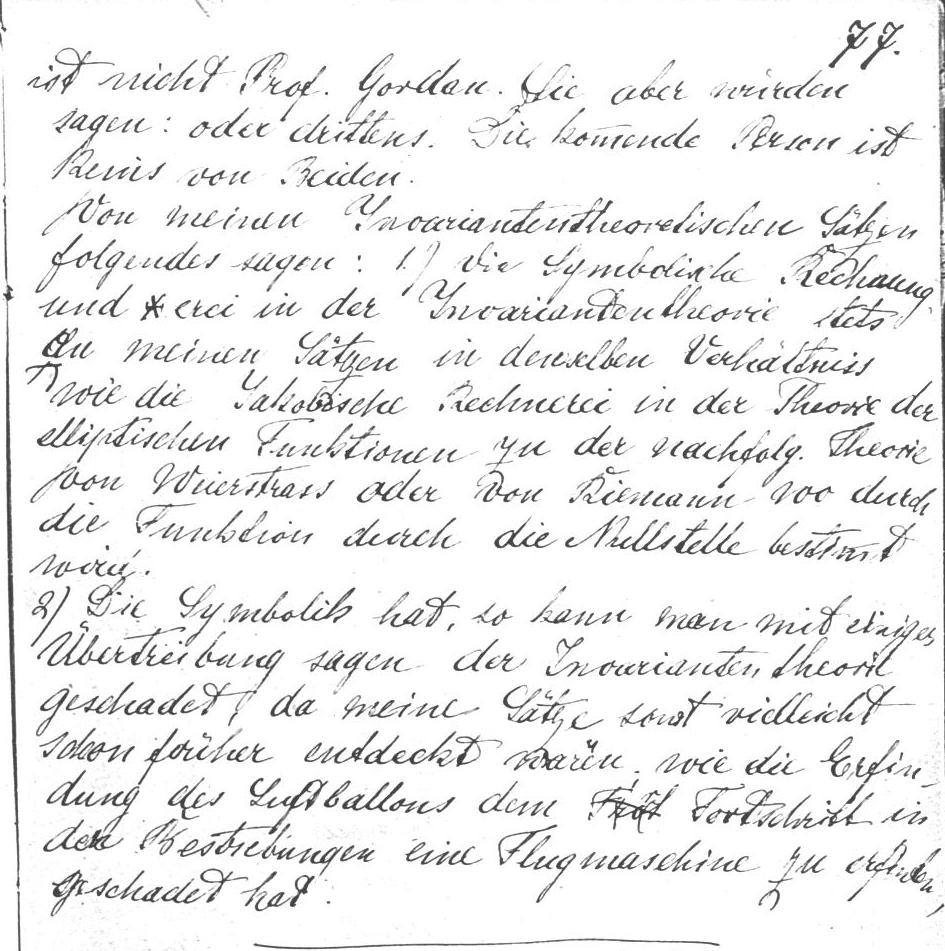 77.
ist nicht Prof. Gordan. Sie aber würden
sagen: oder drittens. Die kom̄ende Person ist
keins von Beiden.
Von meinen Invariantentheoretischen Sätzen
folgendes sagen: 1.) Die Symbolische Rechnung
und *erei in der Invariantentheorie stets
zu meinen Sätzen in demselben Verhältniss
wie die Jakobische Rechnerei in der Theorie der
elliptischen Funktionen zu der nachfolg. Theorie
von Weierstrass oder von Riemann wo durch
die Funktion durch die Nullstelle bestim̄t
wird.
2) Die Symbolik hat, so kann man mit einiger
Übertreibung sagen der Invariantentheorie
geschadet, da meine Sätze sonst vielleicht
schon früher entdeckt wären. wie die Erfin-
dung des Luftballons dem Fortschritt in
den Bestrebungen eine Flugmaschine zu erfinden,
geschadet hat.